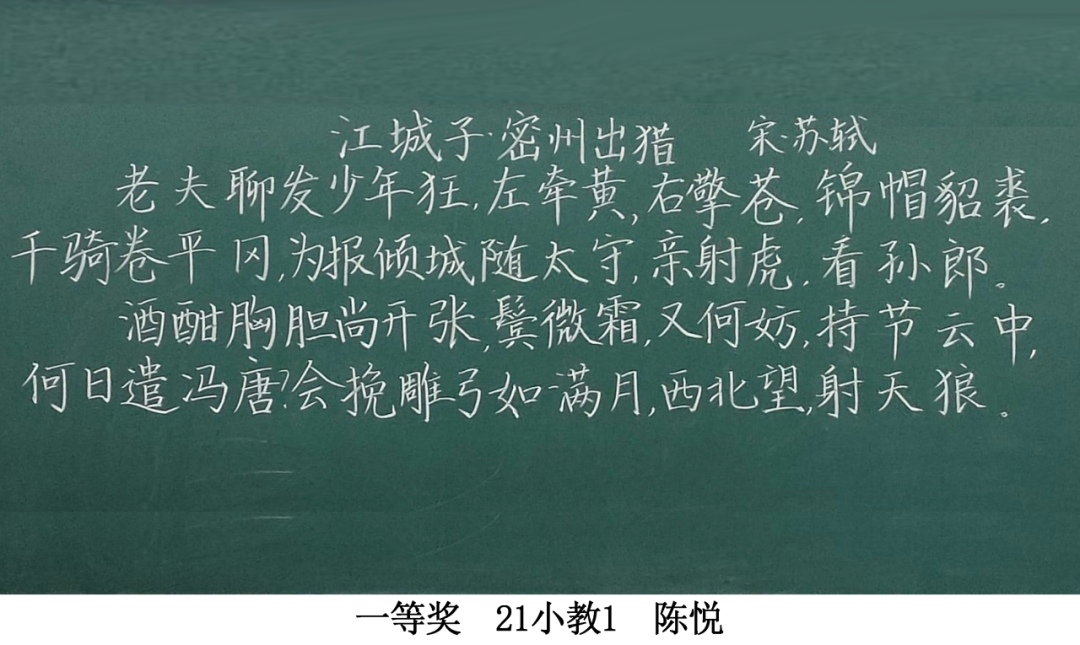 江城子·密州出猎 宋·苏轼
老夫聊发少年狂,左牵黄,右擎苍,锦帽貂裘,
千骑卷平冈,为报倾城随太守,亲射虎,看孙郎。
酒酣胸胆尚开张,鬓微霜,又何妨,持节云中,
何日遣冯唐?会挽雕弓如满月,西北望,射天狼。
一等奖 21小教1 陈悦